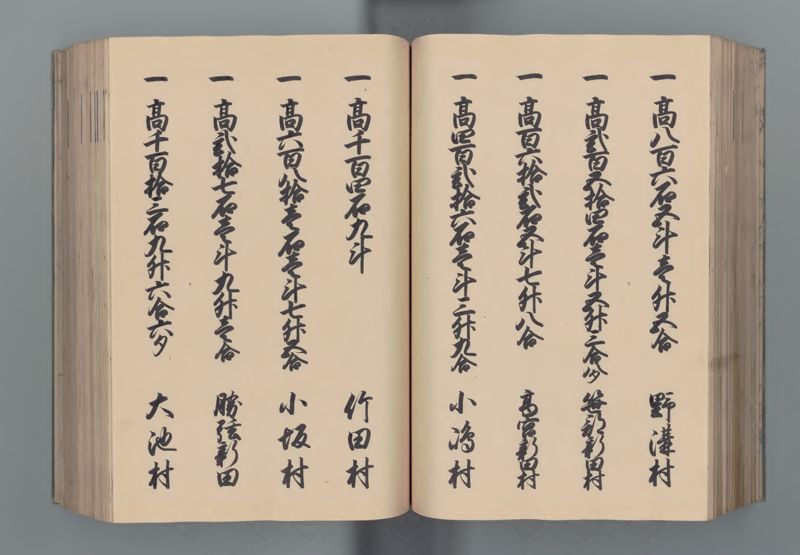 一高八百六石五斗壱升五合 野溝村
一高弐百五拾四石壱斗五升三合八夕 笹部新田村
一高百六拾弐石五斗七升八合 高宮新田村
一高四百弐拾六石壱斗三升九合 小嶋村
一高千百四石九斗 竹田村
一高六百八拾壱石壱斗七升五合 小坂村
一高弐拾七石壱斗九升壱合 勝弦新田
一高千百拾二石九升六合六夕 大池村